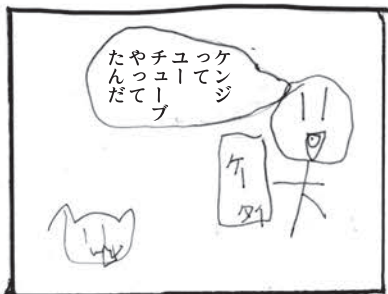 ケンジ
って
ユー
チューブ
やって
たんだ
ケー
タイ